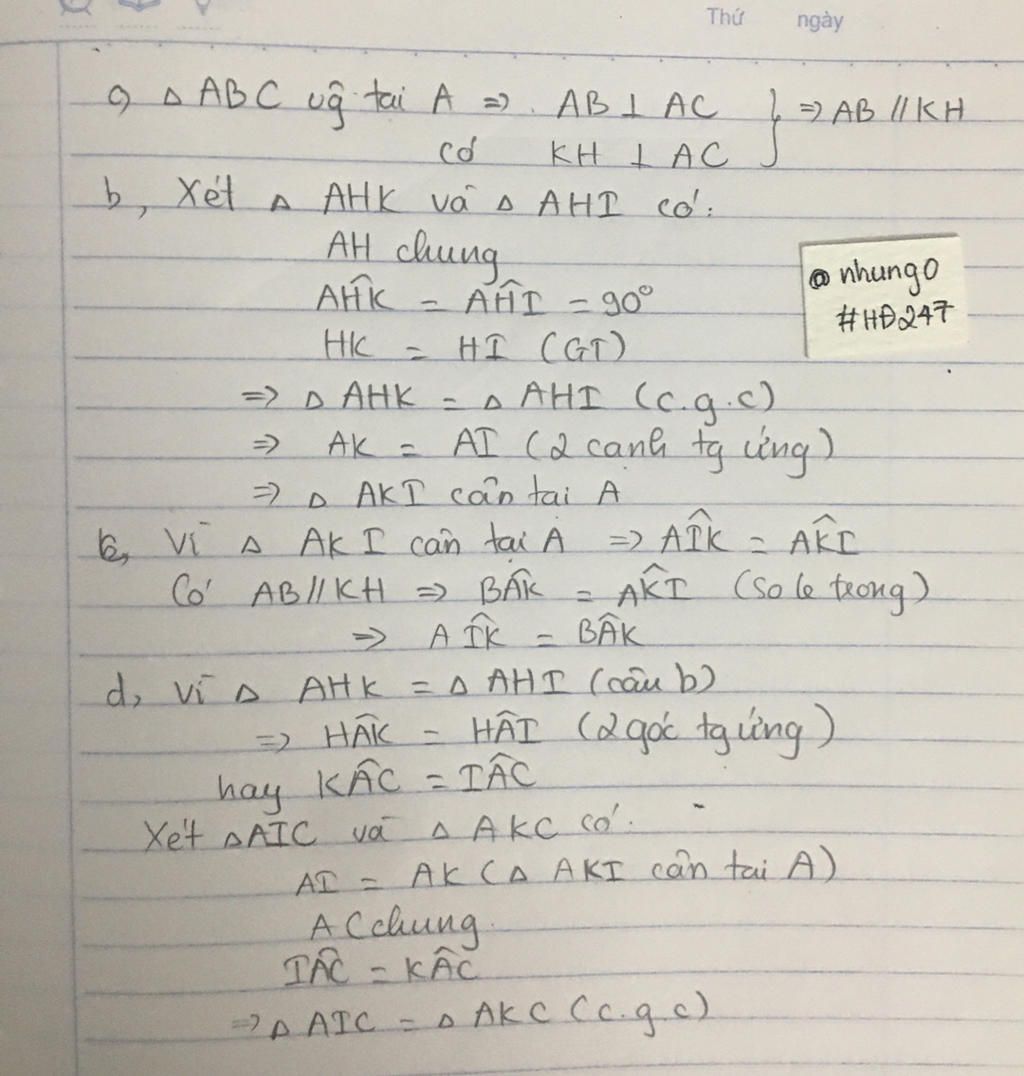 Thứ ngày
a) Δ ABC vg tại A => AB ⊥ AC } => AB // KH
có KH ⊥ AC
b, Xét Δ AHK và Δ AHI có:
AH chung
AĤK = AĤI = 90°
HK = HI (GT)
=> Δ AHK = Δ AHI (c.g.c)
=> AK = AI (2 cạnh tg ứng)
=> Δ AKI cân tại A
@nhung0
#HĐ247
c, Vì Δ AKI cân tại A => AÎK = AK̂I
Có AB//KH => BÂK = AK̂I (so le trong)
=> AÎK = BÂK
d, Vì Δ AHK = Δ AHI (câu b)
=> HÂK = HÂI (2 góc tg ứng)
hay KÂC = IÂC
Xét Δ AIC và Δ AKC có:
AI = AK (Δ AKI cân tại A)
AC chung
IÂC = KÂC
=> Δ AIC = Δ AKC (c.g.c)